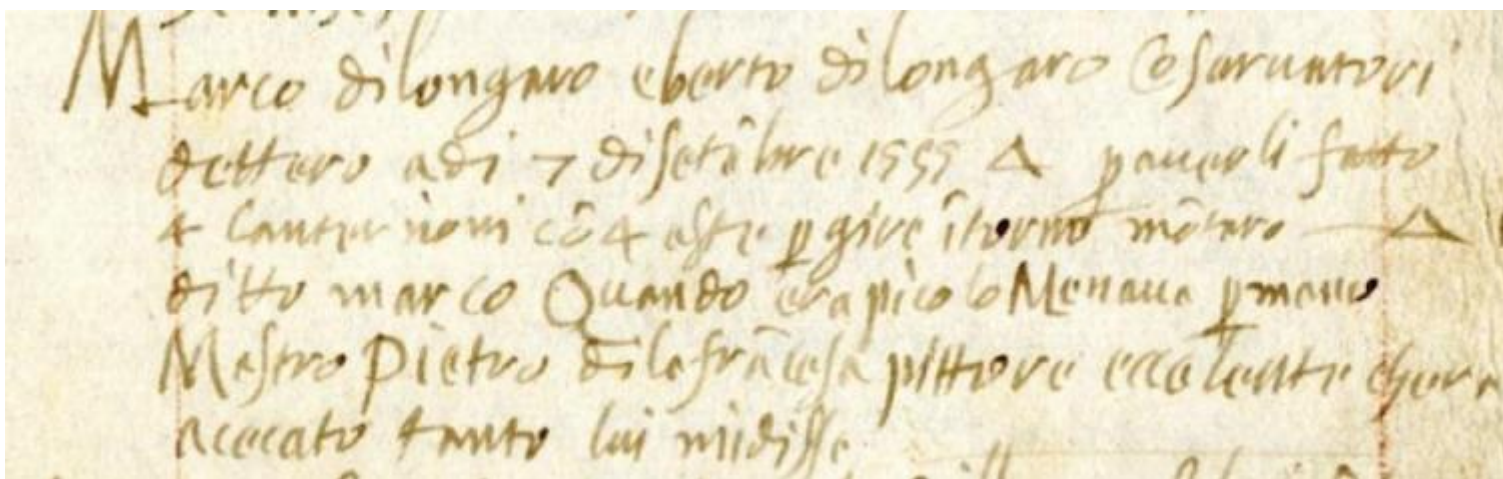 Marco dilongaro eberto dilongaro Cõsarvatori
dettero adi 7 disetẽbre 1555 Δ p averli fatto
4 lanternoni cõ 4 aste p gire ĩtorno mõtaro Δ
ditto marco Quando era picolo Menava p mano
Mastro Pietro dilafrãcesca pittore eccelente chera
acecato tanto lui midisse